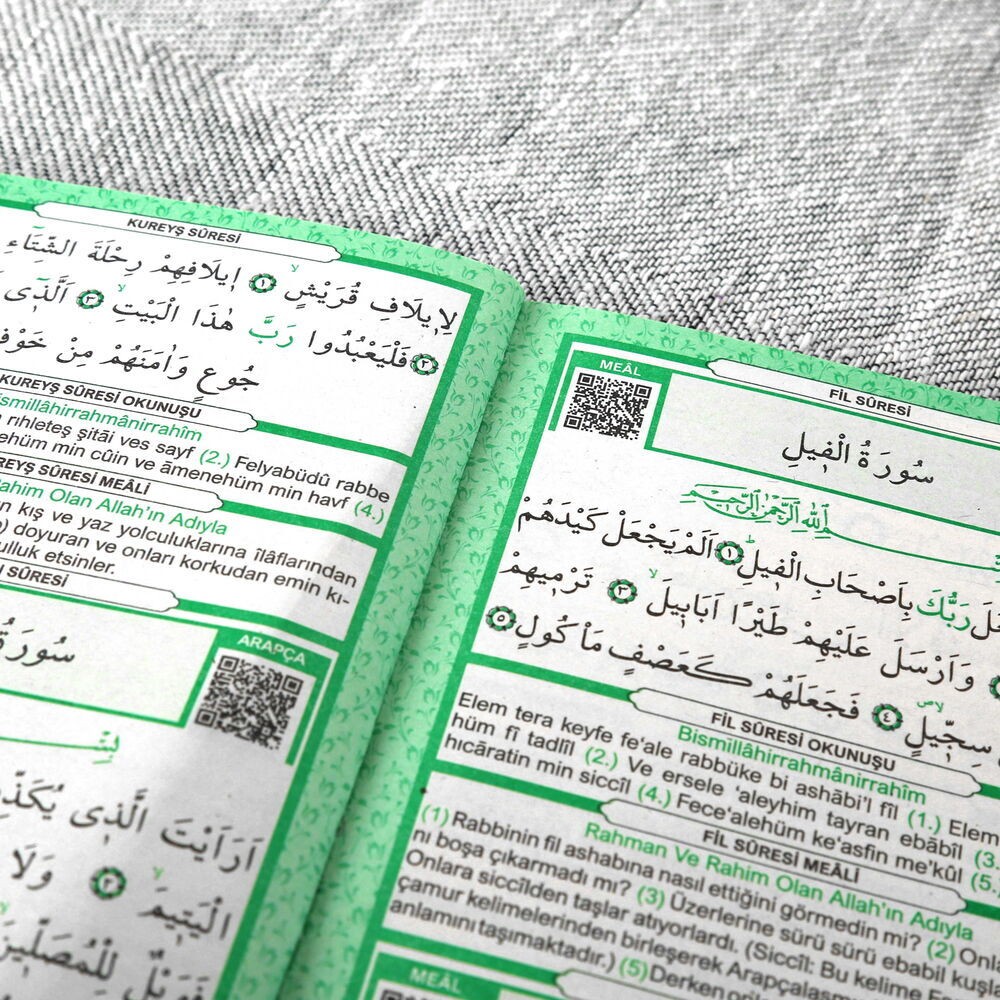 KUREYŞ SÛRESİ
لِا۪يلَافِ قُرَيْشٍ ﴿١﴾ ا۪يلَافِهِمْ رِحْلَةَ الشِّتَٓاءِ
﴿٢﴾ فَلْيَعْبُدُوا رَبَّ هٰذَا الْبَيْتِ ﴿٣﴾ اَلَّذ۪ٓي
جُوعٍ وَاٰمَنَهُمْ مِنْ خَوْفٍ
KUREYŞ SÛRESİ OKUNUŞU
Bismillâhirrahmânirrahîm
rıhleteş şitâi ves sayf (2.) Felyabüdû rabbe
min cûin ve âmenehüm min havf (4.)
KUREYŞ SÛRESİ MEÂLİ
Rahim Olan Allah'ın Adıyla
kış ve yaz yolculuklarına îlâflarından
doyuran ve onları korkudan emin kı-
kulluk etsinler.
SÛRESİ
ARAPÇA
سُورَةُ
اَرَاَيْتَ الَّذ۪ي يُكَذِّبُ
الْيَت۪يمَ ﴿٢﴾ وَلَا
فَوَيْلٌ لِلْمُصَلّ۪ينَ
MEÂL
FİL SÛRESİ
سُورَةُ الْف۪يلِ
اللّٰهِ الرَّحْمٰنِ الرَّح۪يمِ
رَبُّكَ بِاَصْحَابِ الْف۪يلِ ﴿١﴾ اَلَمْ يَجْعَلْ كَيْدَهُمْ
وَاَرْسَلَ عَلَيْهِمْ طَيْرًا اَبَاب۪يلَ ﴿٣﴾ تَرْم۪يهِمْ
سِجّ۪يلٍ ﴿٤﴾ فَجَعَلَهُمْ كَعَصْفٍ مَأْكُولٍ ﴿٥﴾
FİL SÛRESİ OKUNUŞU
Bismillâhirrahmânirrahîm
Elem tera keyfe fe'ale rabbüke bi ashâbi'l fîl (1.) Elem
hüm fî tadlîl (2.) Ve ersele 'aleyhim tayran ebâbîl (3.
hıcâratin min siccîl (4.) Fece'alehüm ke'asfin me'kûl (5.
FİL SÛRESİ MEÂLİ
Rahman Ve Rahim Olan Allah'ın Adıyla
(1) Rabbinin fil ashabına nasıl ettiğini görmedin mi? (2) Onla
nı boşa çıkarmadı mı? (3) Üzerlerine sürü sürü ebabil kuşla
Onlara siccîlden taşlar atıyorlardı. (Siccîl: Bu kelime
çamur kelimelerinden birleşerek Arapçalaş
anlamını taşımaktadır.) (5) Derken
MEÂL